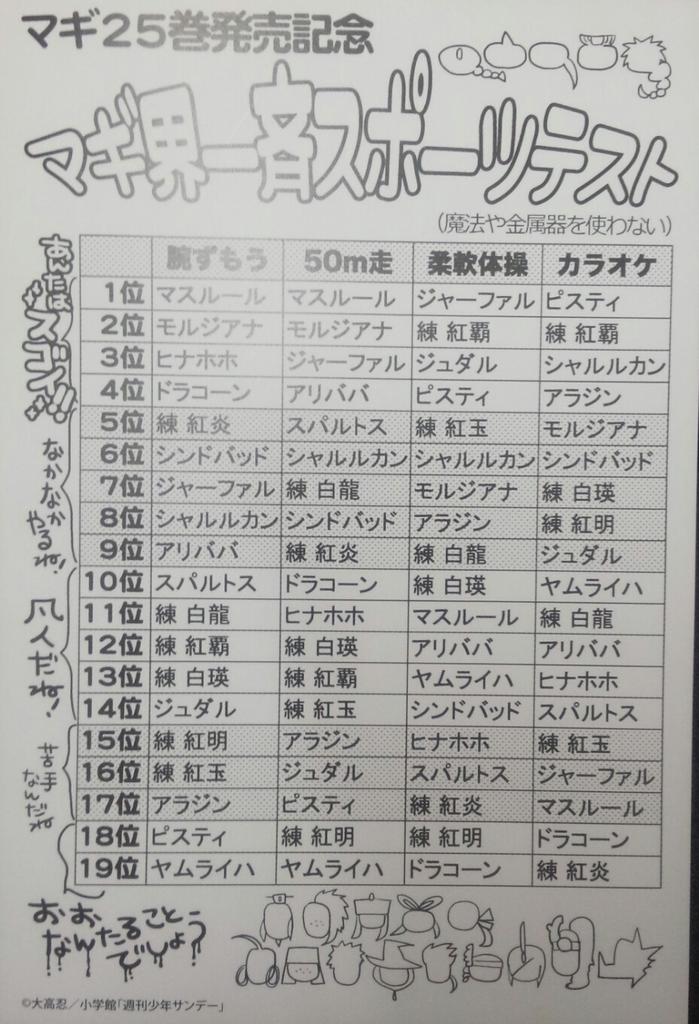 マギ25巻発売記念
マギ界一斉スポーツテスト
(魔法や金属器を使わない)
腕ずもう 50m走 柔軟体操 カラオケ
あんたはスゴイ!!
1位 マスルール マスルール ジャーファル ピスティ
2位 モルジアナ モルジアナ 練 紅覇 練 紅覇
3位 ヒナホホ ジャーファル ジュダル シャルルカン
4位 ドラコーン アリババ ピスティ アラジン
なかなかやるね!
5位 練 紅炎 スパルトス 練 紅玉 モルジアナ
6位 シンドバッド シャルルカン シャルルカン シンドバッド
7位 ジャーファル 練 白龍 モルジアナ 練 白瑛
8位 シャルルカン シンドバッド アラジン 練 紅明
9位 アリババ 練 紅炎 練 白龍 ジュダル
凡人だね!
10位 スパルトス ドラコーン 練 白瑛 ヤムライハ
11位 練 白龍 ヒナホホ マスルール 練 白龍
12位 練 紅覇 練 白瑛 アリババ アリババ
13位 練 白瑛 練 紅覇 ヤムライハ ヒナホホ
14位 ジュダル 練 紅玉 シンドバッド スパルトス
苦手なんだね
15位 練 紅明 アラジン ヒナホホ 練 紅玉
16位 練 紅玉 ジュダル スパルトス ジャーファル
17位 アラジン ピスティ 練 紅炎 マスルール
18位 ピスティ 練 紅明 練 紅明 ドラコーン
19位 ヤムライハ ヤムライハ ドラコーン 練 紅炎
おお
なんたること
でしょう
©大高忍/小学館「週刊少年サンデー」